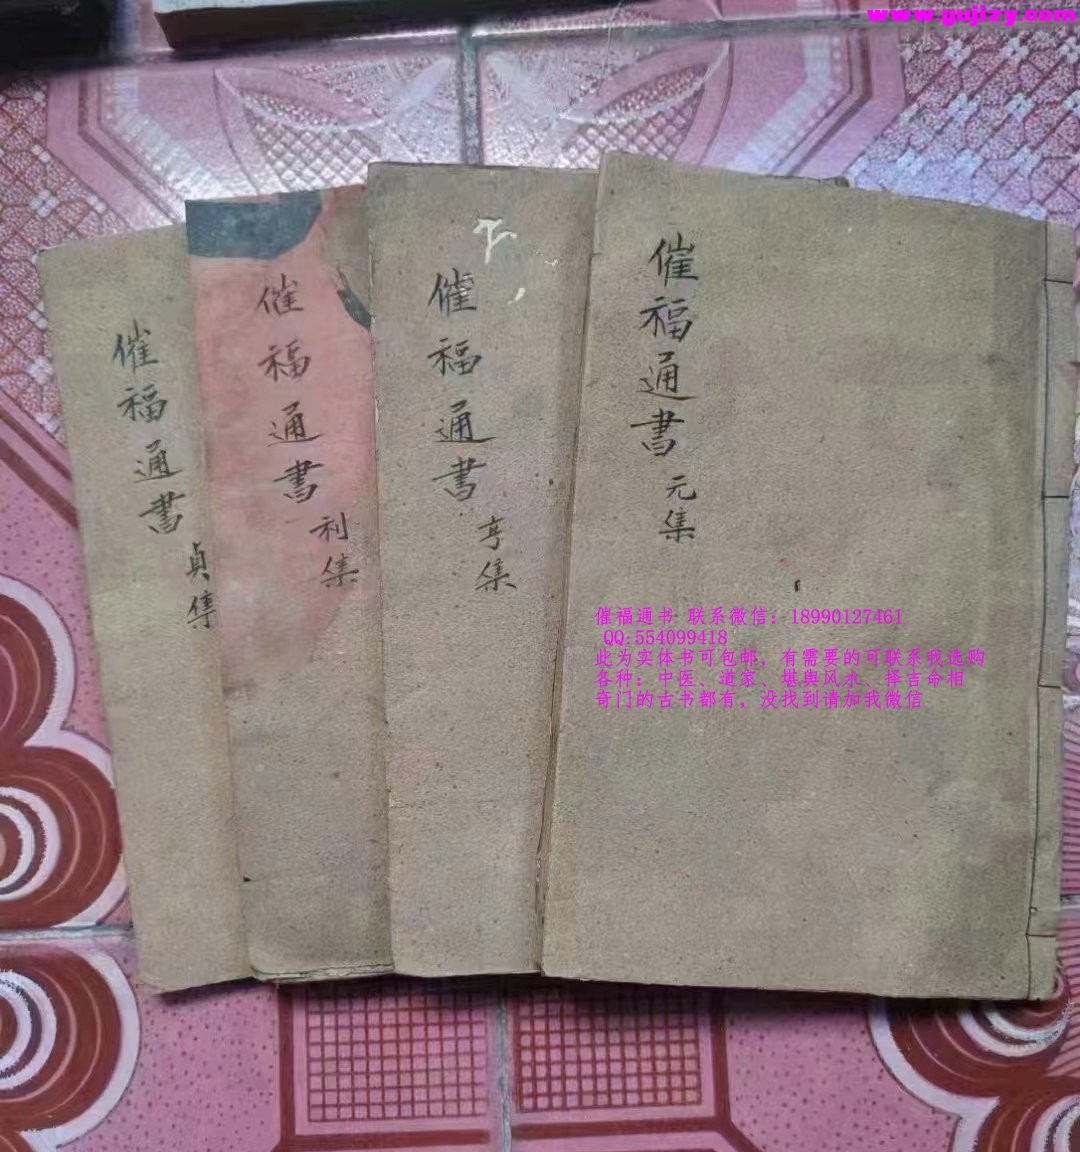 www.gujizy.com
催福通书 元集
催福通书 亨集
催福通书 利集
催福通书 贞集
催福通书 联系微信：18990127461
QQ:554099418
此为实体书可包邮，有需要的可联系我选购
各种：中医、道家、堪舆风水、择吉命相
奇门的古书都有，没找到请加我微信